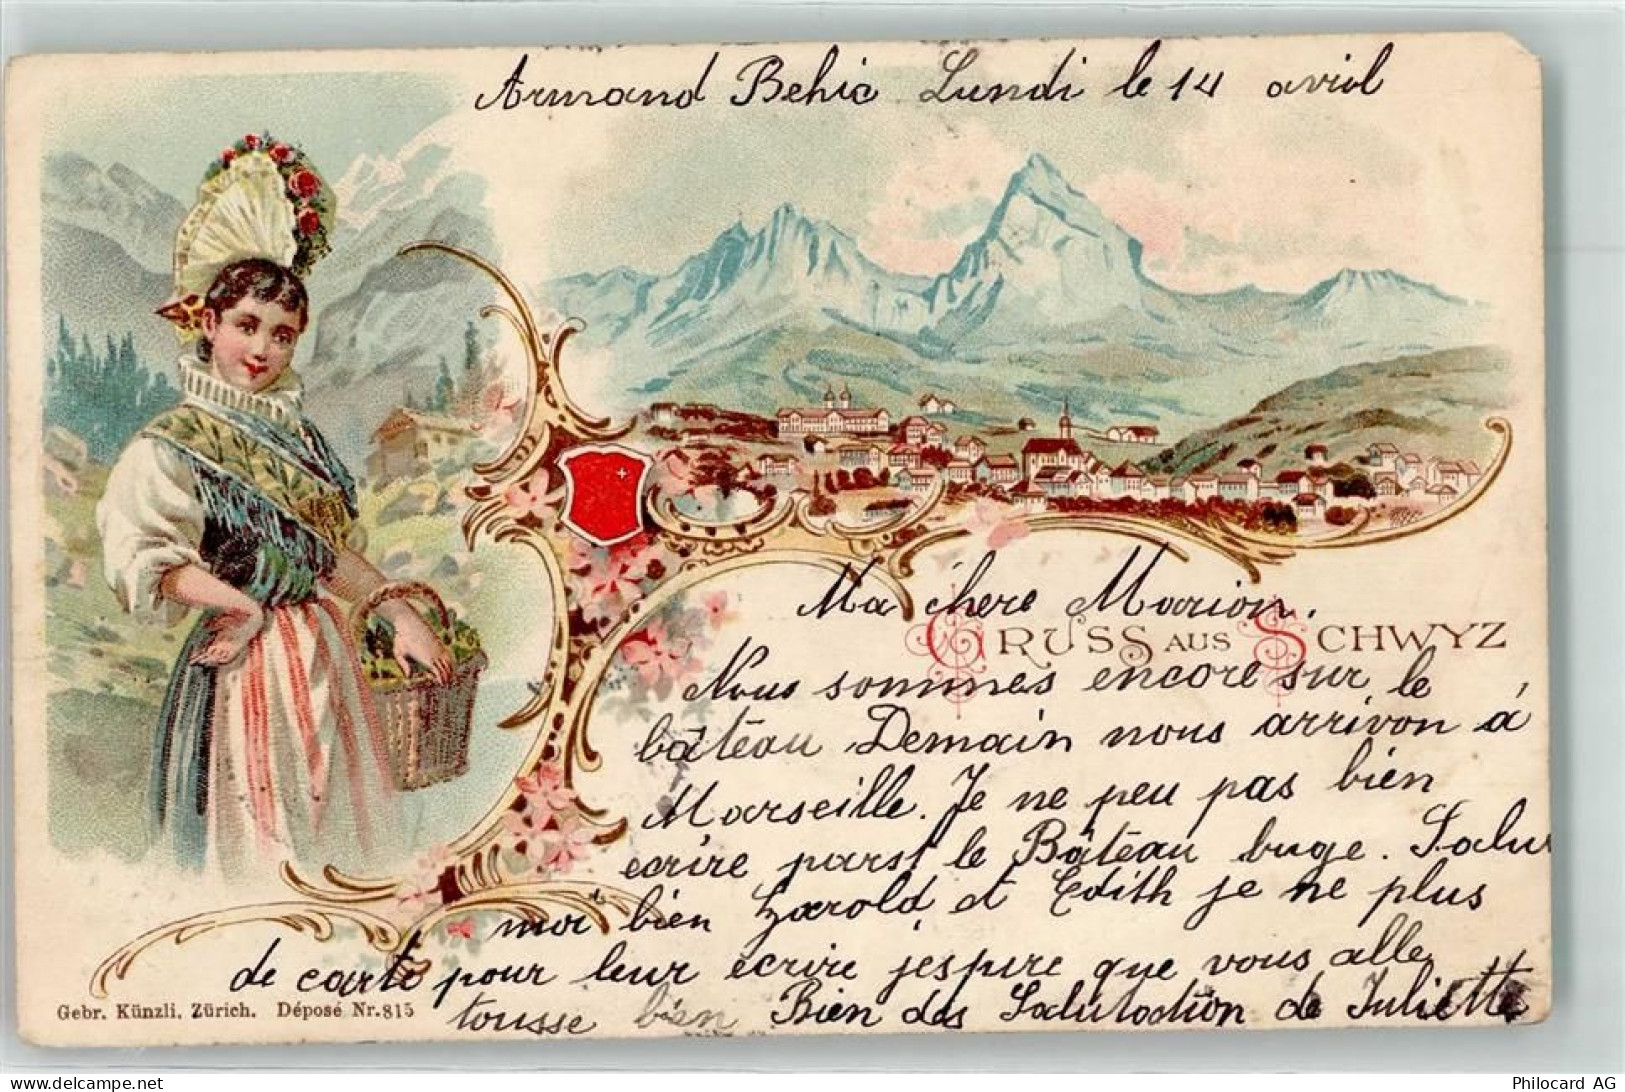 Armand Behic Lundi le 14 avril
Ma chere Marion.
GRUSS AUS SCHWYZ
Nous sommes encore sur le
bâteau Demain nous arrivon á
Marseille. Je ne peu pas bien
ecrire parsl le Bâteau buge. Salu
moi bien Harold et Edith je ne plus
de carte pour leur ecrire jespire que vous alle
tousse bien Bien des Salutation de Juliette
Gebr. Künzli, Zürich. Déposé Nr. 815
delcampe.net
Philocard AG